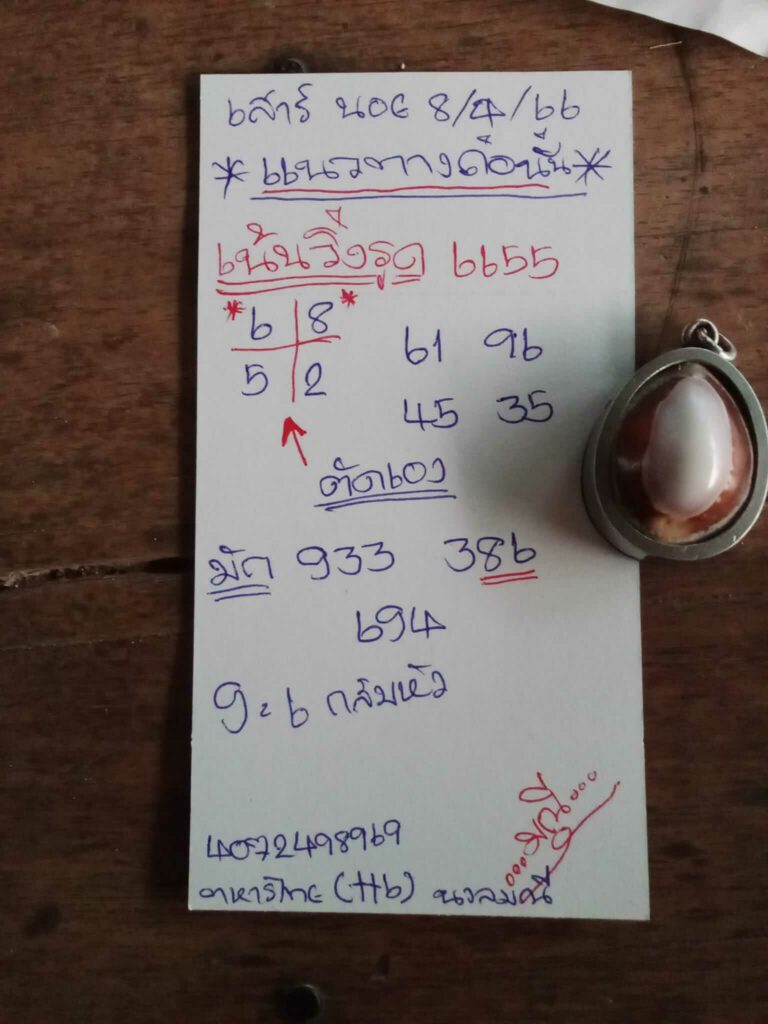 เสาร์ นอย 8/4/66
* แนวทางดือนี้น *
เน้นวิ่งรูด 6655
* 6 8 *
5 2
61 96
45 35
ตัดเอง
มัด 933 386
694
9 = 6 กลับหัว
4072498969
ทหารไทย (ttb) นวลมณี
...มณี...